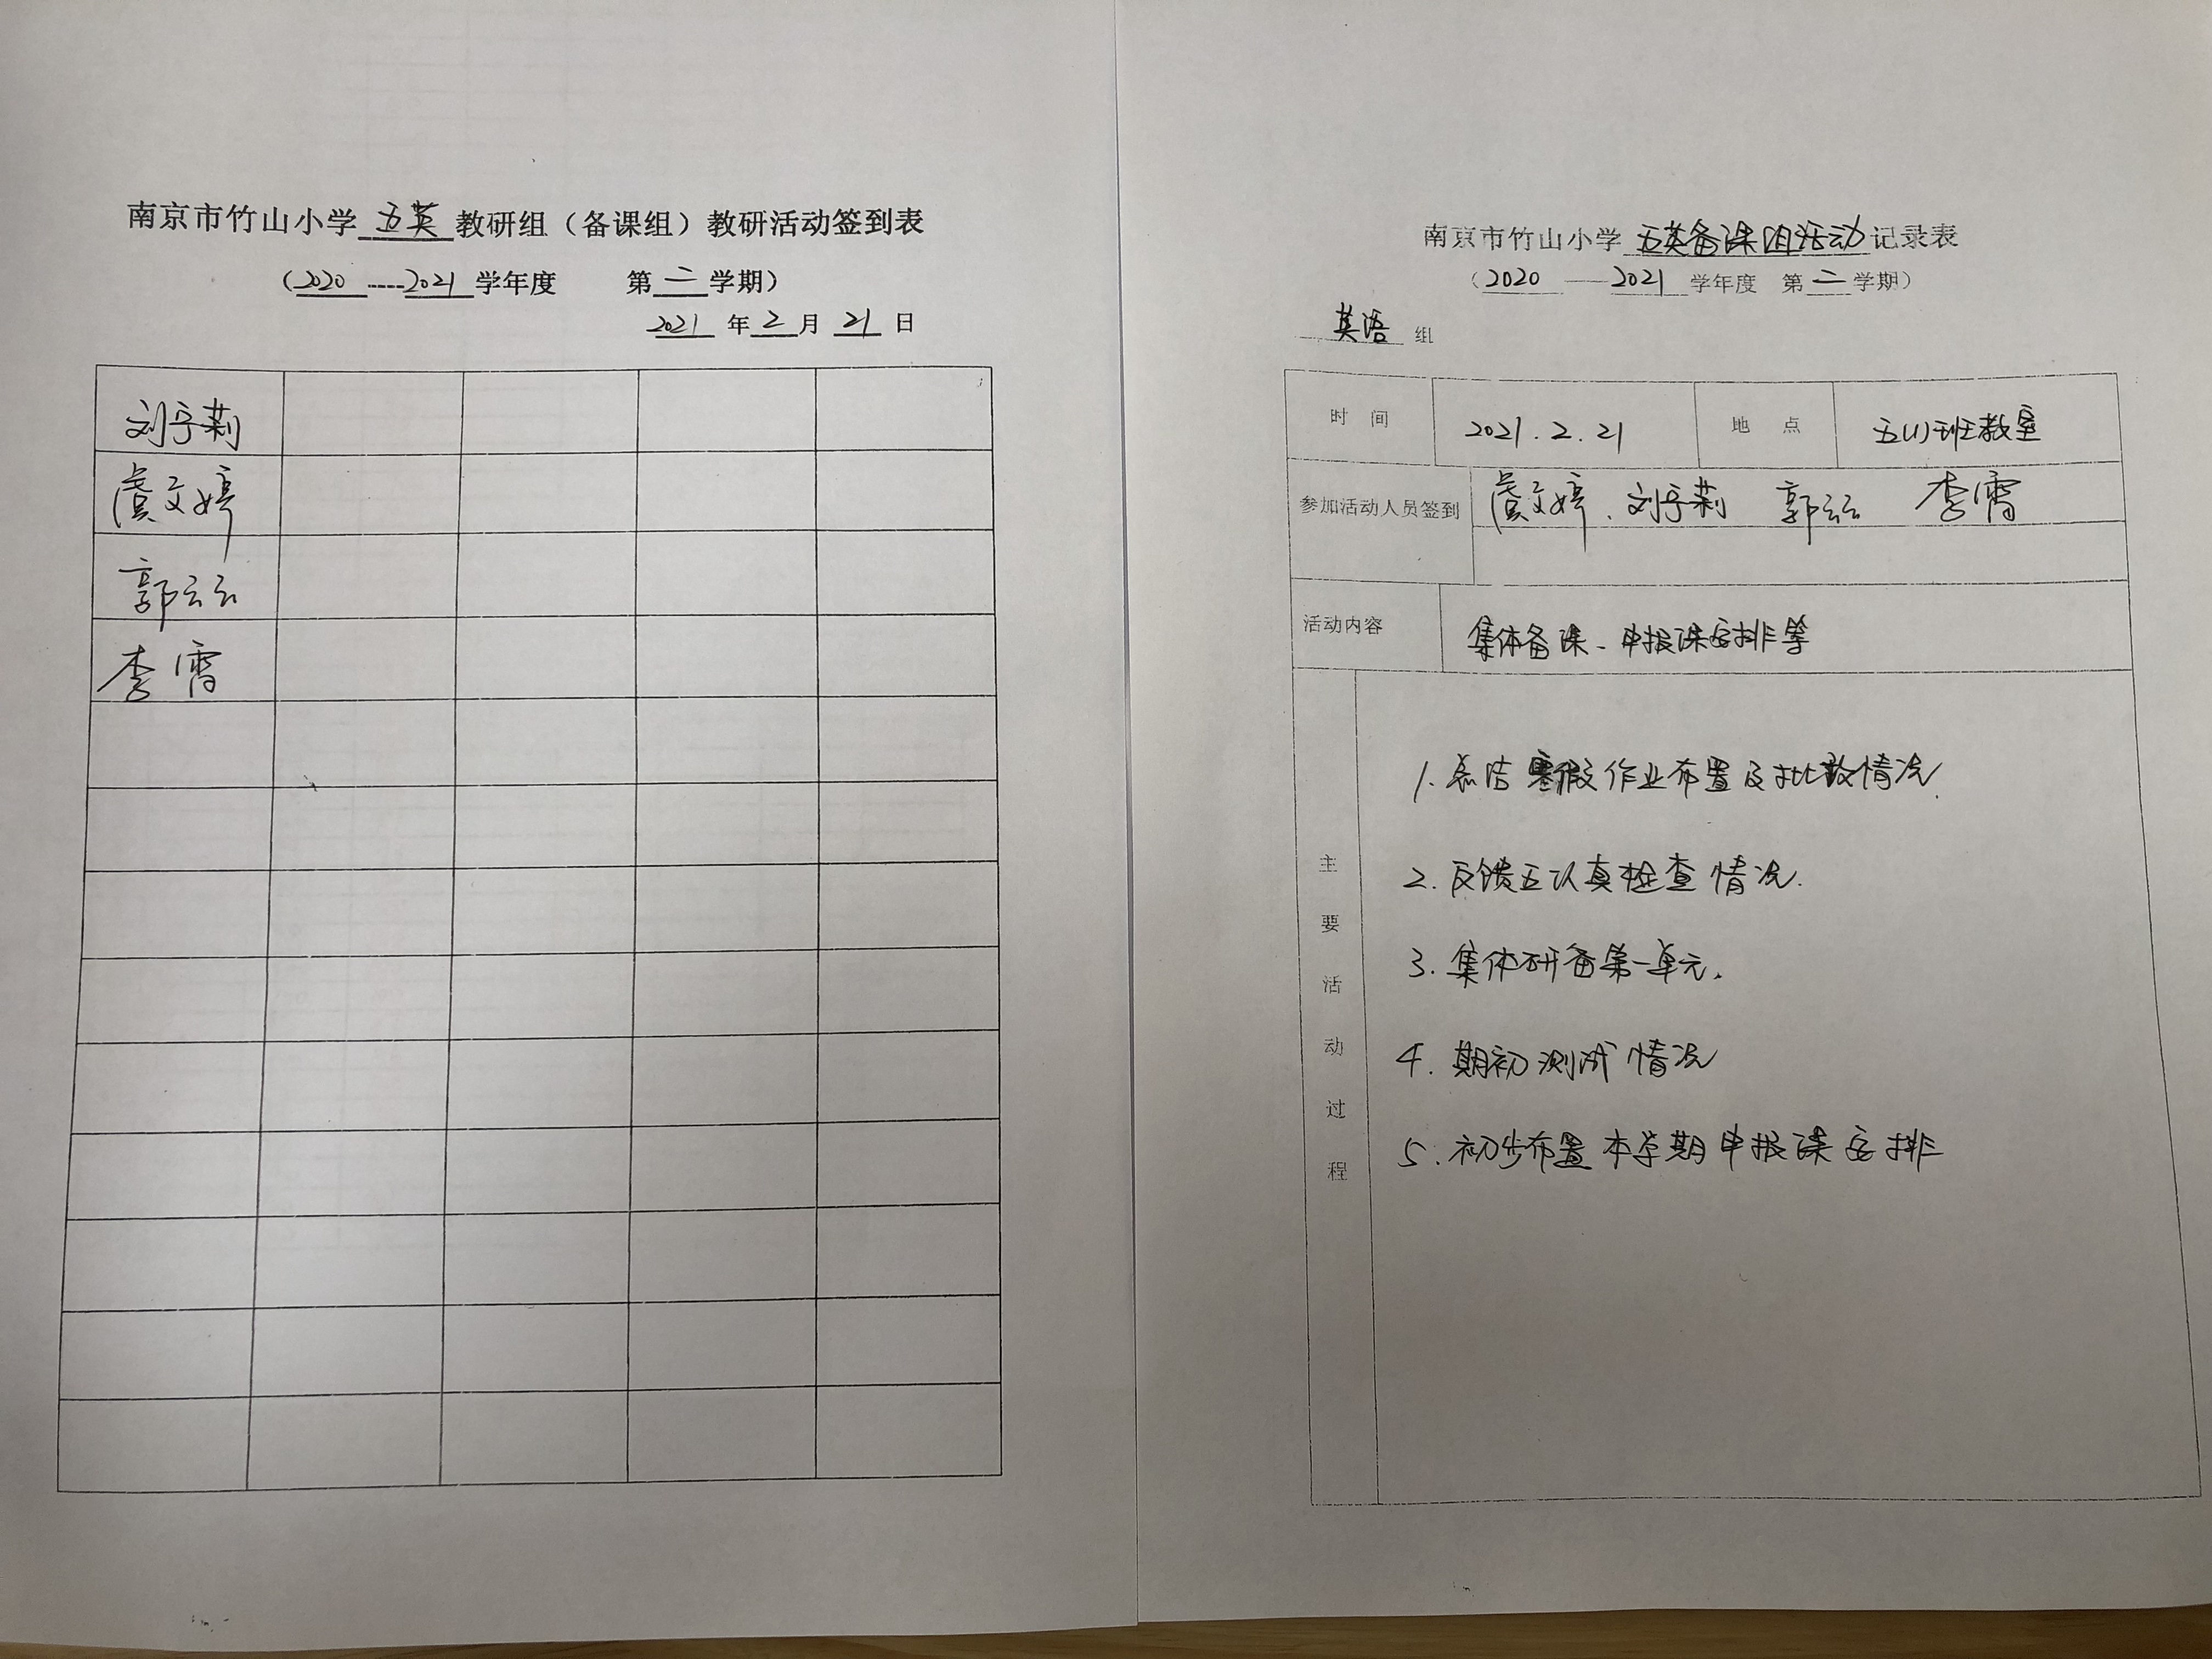 南京市竹山小学 五英 教研组（备课组）教研活动签到表
（2020----2021学年度 第二学期）
2021 年 2 月 21 日
刘宇莉
虞文婷
郭云云
李霄
南京市竹山小学 五英备课组活动 记录表
（2020——2021学年度 第二学期）
英语 组
时 间 2021.2.21 地 点 五(1)班教室
参加活动人员签到 虞文婷、刘宇莉 郭云云 李霄
活动内容 集体备课、申报课安排等
主要活动过程
1. 总结寒假作业布置及批改情况.
2. 反馈五认真检查情况.
3. 集体研备第一单元.
4. 期初测试情况
5. 初步布置本学期申报课安排